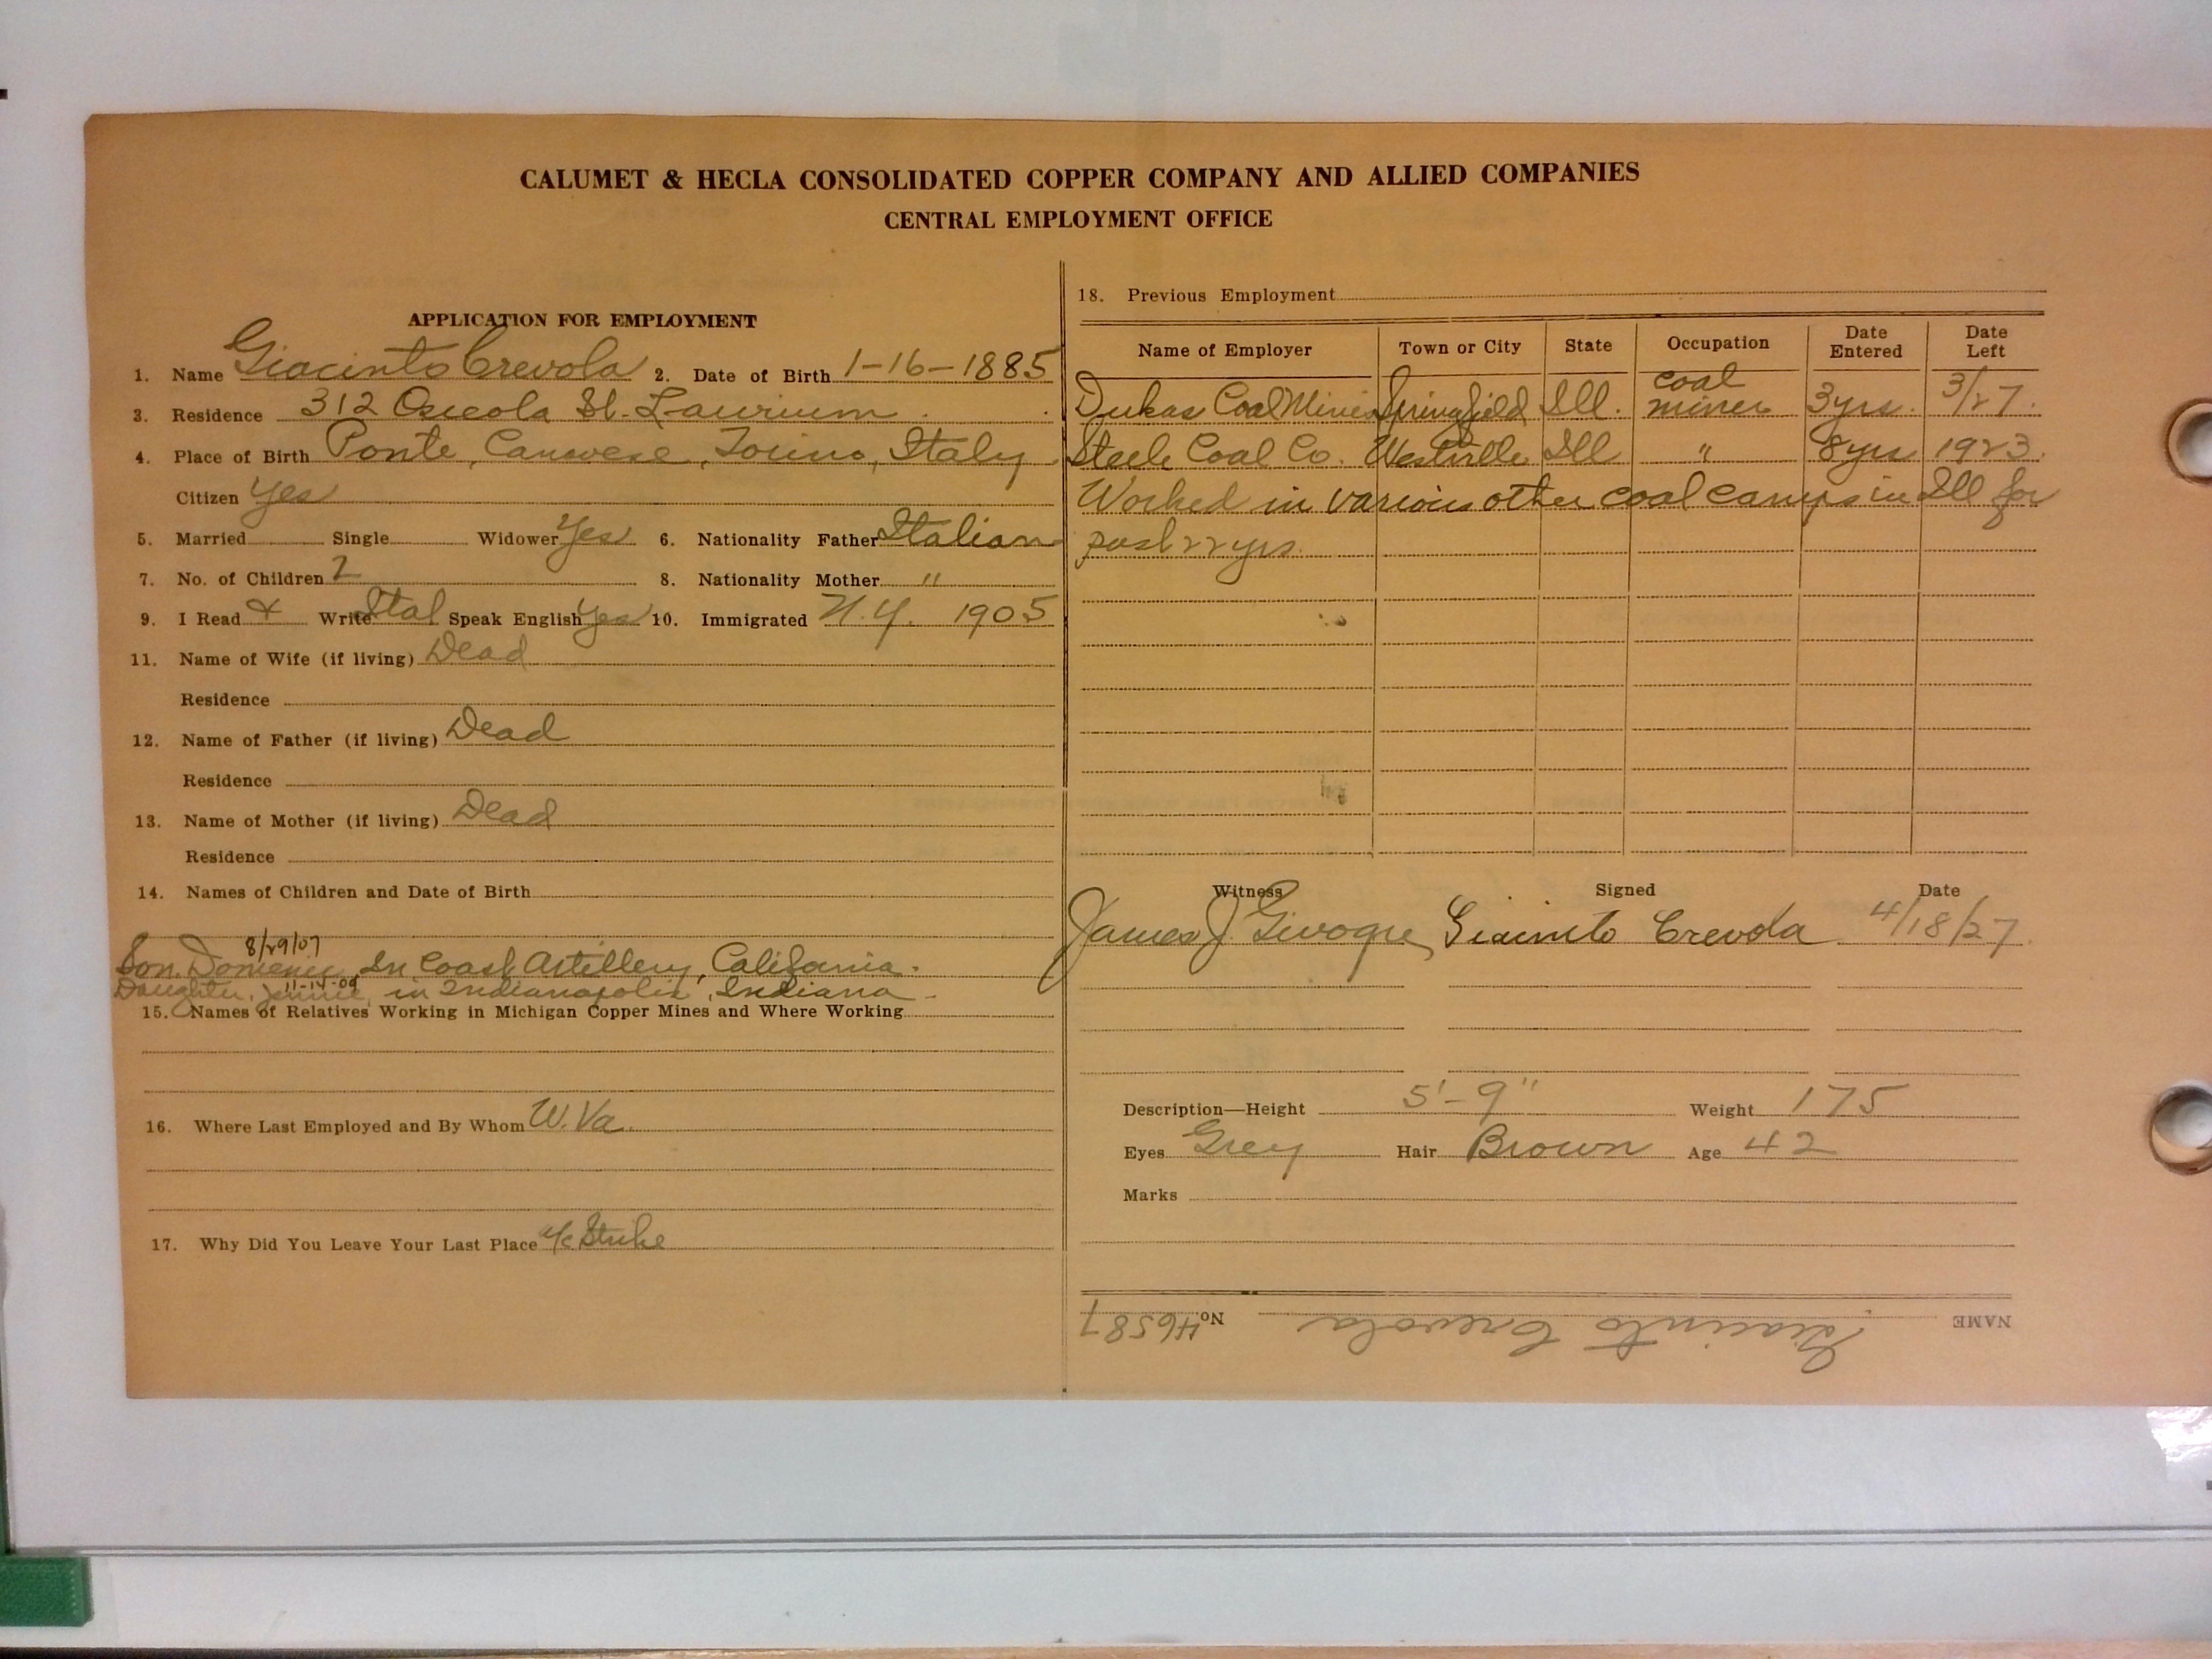 CALUMET & HECLA CONSOLIDATED COPPER COMPANY AND ALLIED COMPANIES
CENTRAL EMPLOYMENT OFFICE
APPLICATION FOR EMPLOYMENT
1. Name Giacinto Crevola 2. Date of Birth 1-16-1885
3. Residence 312 Osceola St. Laurium.
4. Place of Birth Ponte, Canavese, Torino, Italy
Citizen Yes
5. Married Single Widower Yes 6. Nationality Father Italian
7. No. of Children 2 8. Nationality Mother "
9. I Read & Write Ital Speak English Yes 10. Immigrated N.Y. 1905
11. Name of Wife (if living) Dead
Residence
12. Name of Father (if living) Dead
Residence
13. Name of Mother (if living) Dead
Residence
14. Names of Children and Date of Birth
8/29/07
Son. In Coast Artillery, California.
11-14-09
Daughter, Jennie, in Indianapolis, Indiana.
15. Names of Relatives Working in Michigan Copper Mines and Where Working
16. Where Last Employed and By Whom W. Va.
17. Why Did You Leave Your Last Place a/c Strike
18. Previous Employment
Name of Employer Town or City State Occupation Date Entered Date Left
Dukas Coal Mines Springfield Ill. coal miner 3 yrs. 3/27.
Steele Coal Co. Westville Ill " 8 yrs 1923.
Worked in various other coal camps in Ill for
past 22 yrs.
Witness Signed Date
James J. Giacinto Crevola 4/18/27.
Description—Height 5'-9" Weight 175
Eyes Grey Hair Brown Age 42
Marks
NAME Giacinto Crevola No. 46587